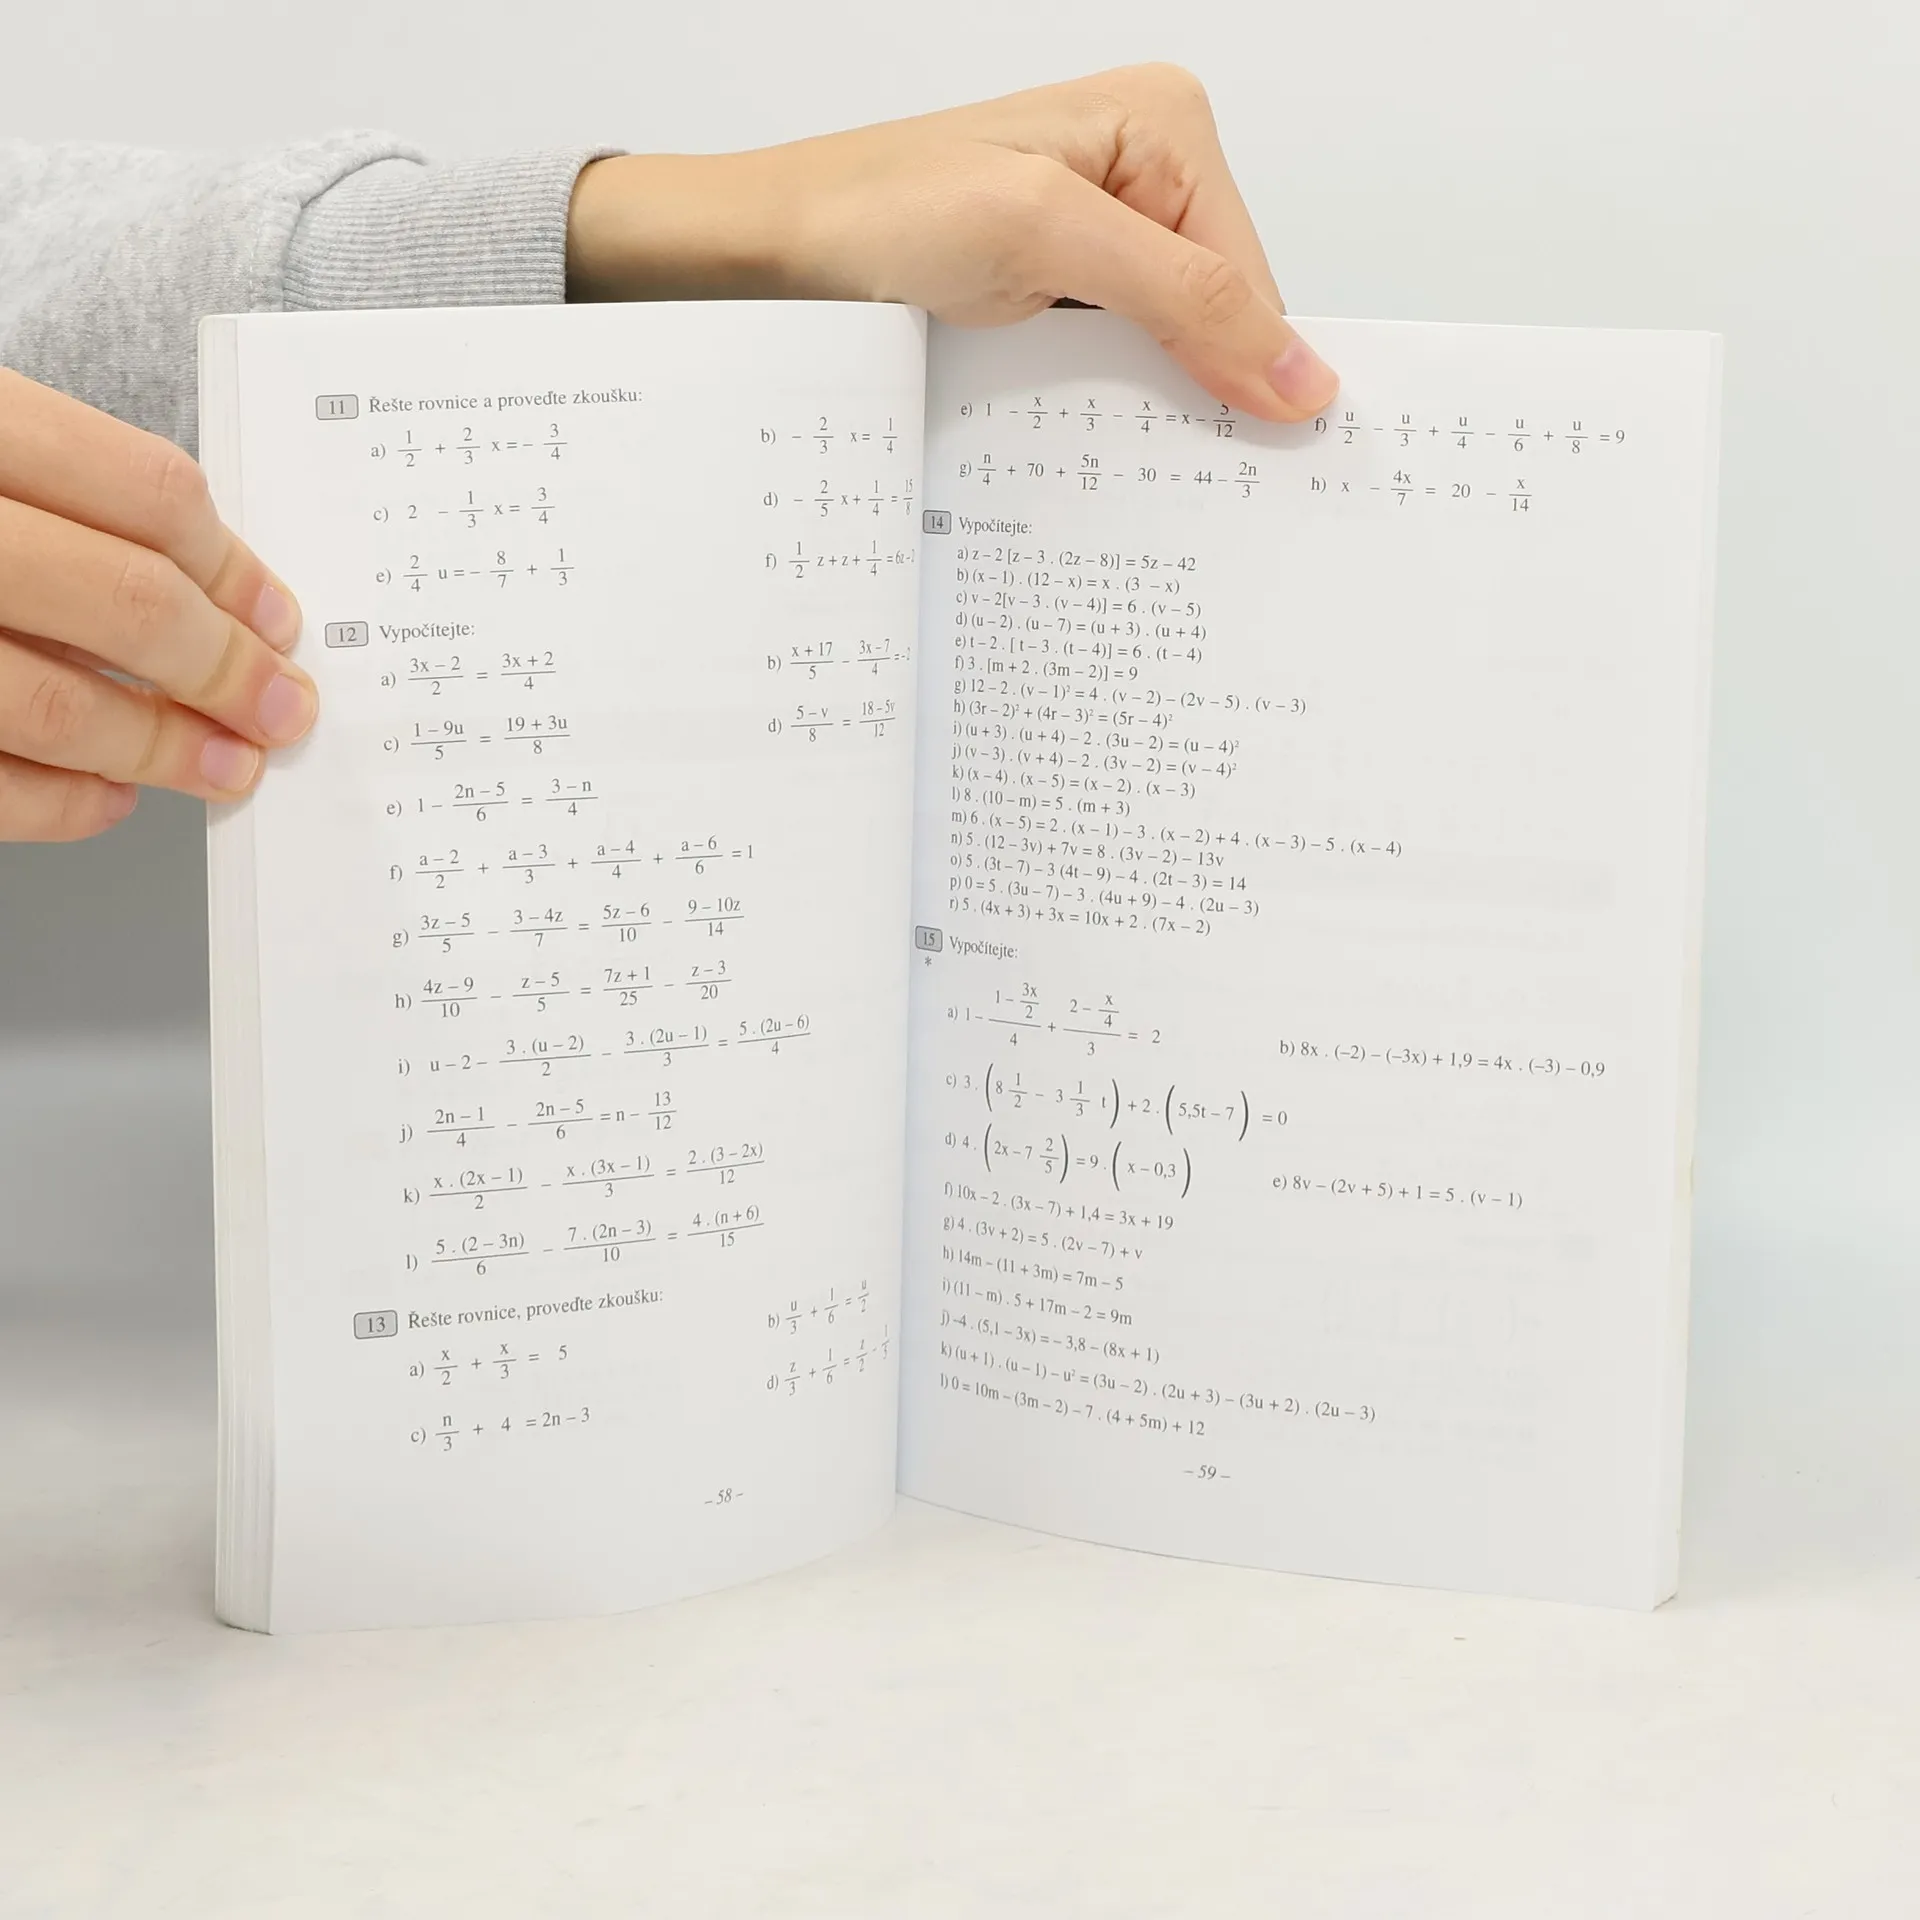 11 Řešte rovnice a proveďte zkoušku:
a) 1/2 + 2/3 x = – 3/4
b) – 2/3 x = 1/4
c) 2 – 1/3 x = 3/4
d) – 2/5 x + 1/4 = 15/8
e) 2/4 u = – 8/7 + 1/3
f) 1/2 z + z + 1/4 = 6z –
12 Vypočítejte:
a) (3x – 2)/2 = (3x + 2)/4
b) (x + 17)/5 – (3x – 7)/4 = –
c) (1 – 9u)/5 = (19 + 3u)/8
d) (5 – v)/8 = (18 – 5v)/12
e) 1 – (2n – 5)/6 = (3 – n)/4
f) (a – 2)/2 + (a – 3)/3 + (a – 4)/4 + (a – 6)/6 = 1
g) (3z – 5)/5 – (3 – 4z)/7 = (5z – 6)/10 – (9 – 10z)/14
h) (4z – 9)/10 – (z – 5)/5 = (7z + 1)/25 – (z – 3)/20
i) u – 2 – 3 . (u – 2)/2 – 3 . (2u – 1)/3 = 5 . (2u – 6)/4
j) (2n – 1)/4 – (2n – 5)/6 = n – 13/12
k) x . (2x – 1)/2 – x . (3x – 1)/3 = 2 . (3 – 2x)/12
l) 5 . (2 – 3n)/6 – 7 . (2n – 3)/10 = 4 . (n + 6)/15
13 Řešte rovnice, proveďte zkoušku:
a) x/2 + x/3 = 5
b) u/3 + 1/6 = u/2
c) n/3 + 4 = 2n – 3
d) z/3 + 1/6 = z/2 – 1/3
– 58 –
e) 1 – x/2 + x/3 – x/4 = x – 5/12
f) u/2 – u/3 + u/4 – u/6 + u/8 = 9
g) n/4 + 70 + 5n/12 – 30 = 44 – 2n/3
h) x – 4x/7 = 20 – x/14
14 Vypočítejte:
a) z – 2 [z – 3 . (2z – 8)] = 5z – 42
b) (x – 1) . (12 – x) = x . (3 – x)
c) v – 2[v – 3 . (v – 4)] = 6 . (v – 5)
d) (u – 2) . (u – 7) = (u + 3) . (u + 4)
e) t – 2 . [ t – 3 . (t – 4)] = 6 . (t – 4)
f) 3 . [m + 2 . (3m – 2)] = 9
g) 12 – 2 . (v – 1)² = 4 . (v – 2) – (2v – 5) . (v – 3)
h) (3r – 2)² + (4r – 3)² = (5r – 4)²
i) (u + 3) . (u + 4) – 2 . (3u – 2) = (u – 4)²
j) (v – 3) . (v + 4) – 2 . (3v – 2) = (v – 4)²
k) (x – 4) . (x – 5) = (x – 2) . (x – 3)
l) 8 . (10 – m) = 5 . (m + 3)
m) 6 . (x – 5) = 2 . (x – 1) – 3 . (x – 2) + 4 . (x – 3) – 5 . (x – 4)
n) 5 . (12 – 3v) + 7v = 8 . (3v – 2) – 13v
o) 5 . (3t – 7) – 3 (4t – 9) – 4 . (2t – 3) = 14
p) 0 = 5 . (3u – 7) – 3 . (4u + 9) – 4 . (2u – 3)
r) 5 . (4x + 3) + 3x = 10x + 2 . (7x – 2)
15 Vypočítejte:
*
a) 1 – (1 – 3x/2)/4 + (2 – x/4)/3 = 2
b) 8x . (–2) – (–3x) + 1,9 = 4x . (–3) – 0,9
c) 3 . (8 1/2 – 3 1/3 t) + 2 . (5,5t – 7) = 0
d) 4 . (2x – 7 2/5) = 9 . (x – 0,3)
e) 8v – (2v + 5) + 1 = 5 . (v – 1)
f) 10x – 2 . (3x – 7) + 1,4 = 3x + 19
g) 4 . (3v + 2) = 5 . (2v – 7) + v
h) 14m – (11 + 3m) = 7m – 5
i) (11 – m) . 5 + 17m – 2 = 9m
j) –4 . (5,1 – 3x) = – 3,8 – (8x + 1)
k) (u + 1) . (u – 1) – u² = (3u – 2) . (2u + 3) – (3u + 2) . (2u – 3)
l) 0 = 10m – (3m – 2) – 7 . (4 + 5m) + 12
– 59 –